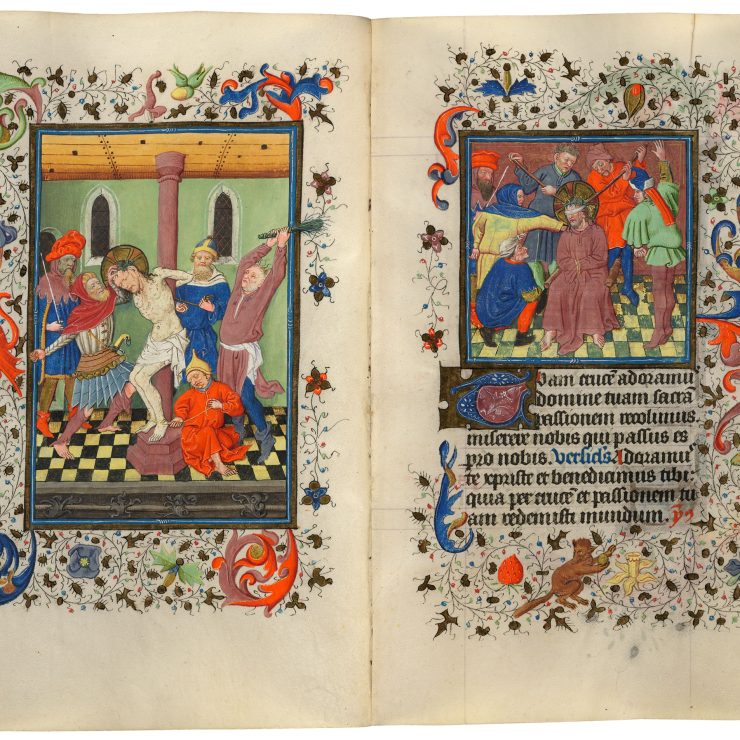 Tuam cruce͂ adoramu'
domine tuam sacrā
passionem recolimus
miserere nobis qui passus es
pro nobis. Versic͂ls Adoramu'
te xp̄riste et benedicimus tibi
quia per cruce͂ et passionem tu
am redemisti mundum.